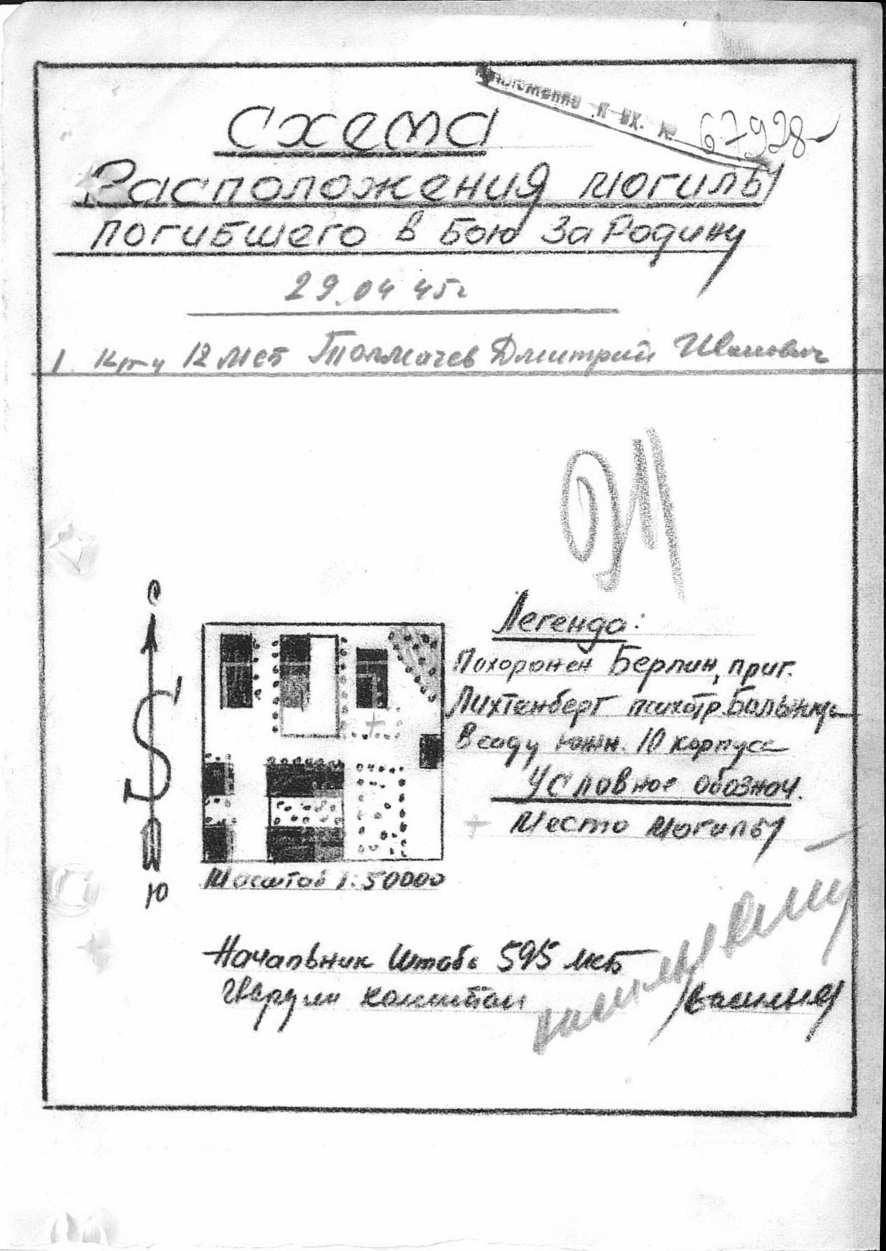 к вх. № 67928
Схема
Расположения могилы
погибшего в бою за Родину
29.04 45г
1. Кр-ц 12 мсб Толмачев Дмитрий Иванович
С
Легенда:
Похоронен Берлин, приг.
Лихтенберг психтр. Больница
В саду южн. 10 корпуса
Условное обознач.
+ Место могилы
Ю
Масштаб 1:50000
Начальник штаба 595 мсб
Гвардии капитан /Васильев/